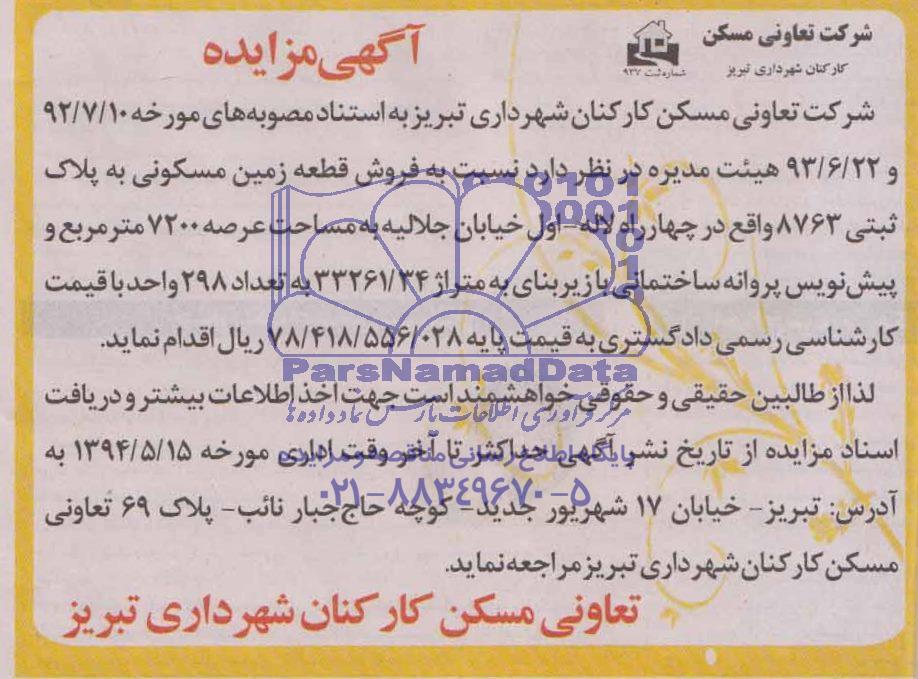 شرکت تعاونی مسکن
کارکنان شهرداری تبریز
شماره ثبت ۹۳۷
آگهی مزایده
شرکت تعاونی مسکن کارکنان شهرداری تبریز به استناد مصوبه‌های مورخه ۹۲/۷/۱۰
و ۹۳/۶/۲۲ هیئت مدیره در نظر دارد نسبت به فروش قطعه زمین مسکونی به پلاک
ثبتی ۸۷۶۳ واقع در چهارراه لاله-اول خیابان جلالیه به مساحت عرصه ۷۲۰۰ مترمربع و
پیش‌نویس پروانه ساختمانی با زیربنای به متراژ ۳۳۲۶۱/۳۴ به تعداد ۲۹۸ واحد با قیمت
کارشناسی رسمی دادگستری به قیمت پایه ۷۸/۴۱۸/۵۵۶/۰۲۸ ریال اقدام نماید.
لذا از طالبین حقیقی و حقوقی خواهشمند است جهت اخذ اطلاعات بیشتر و دریافت
اسناد مزایده از تاریخ نشر آگهی حداکثر تا آخر وقت اداری مورخه ۱۳۹۴/۵/۱۵ به
آدرس: تبریز- خیابان ۱۷ شهریور جدید- کوچه حاج جبار نائب- پلاک ۶۹ تعاونی
مسکن کارکنان شهرداری تبریز مراجعه نماید.
تعاونی مسکن کارکنان شهرداری تبریز
ParsNamadData
مرکز فرآوری اطلاعات پارس نماد داده‌ها
پایگاه اطلاع رسانی مناقصه و مزایده
۰۲۱-۸۸۳۴۹۶۷۰-۵